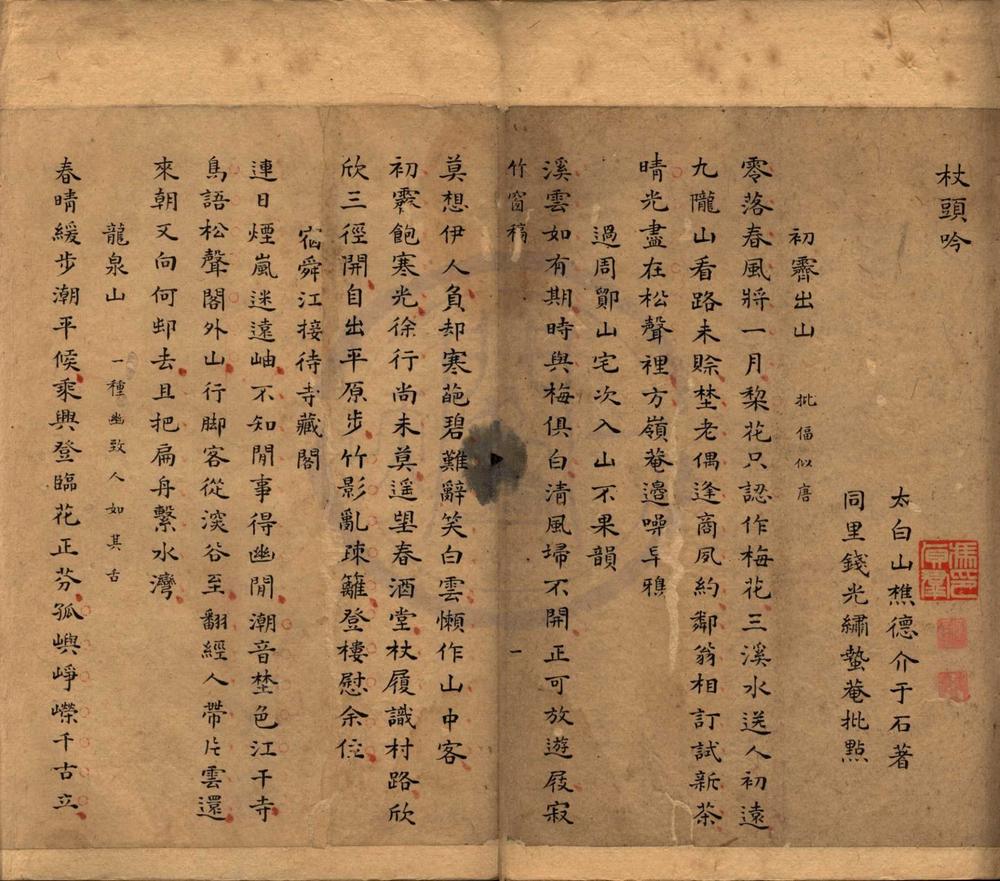 杖頭吟
太白山樵德介于石著
同里錢光繡蟄菴批點
初霽出山 批偪似唐
零落春風將一月梨花只認作梅花三溪水送人初遠
九隴山看路未賒埜老偶逢商夙約鄰翁相訂試新茶
晴光盡在松聲裡方嶺菴邊噪早鴉
過周鄮山宅次入山不果韻
溪雲如有期時與梅俱白清風埽不開正可放遊屐寂
竹窗稿 一
莫想伊人負却寒葩碧難辭笑白雲懶作山中客
初霽飽寒光徐行尚未莫遥望春酒堂杖履識村路欣
欣三徑開自出平原步竹影亂疎籬登樓慰余住
宿舜江接待寺藏閣
連日煙嵐迷遠岫不知閒事得幽閒潮音埜色江干寺
鳥語松聲閣外山行脚客從深谷至翻經人帶片雲還
來朝又向何邨去且把扁舟繫水灣
龍泉山 一種幽致人如其舌
春晴緩步潮平候乘興登臨花正芬孤嶼崢嶸千古立